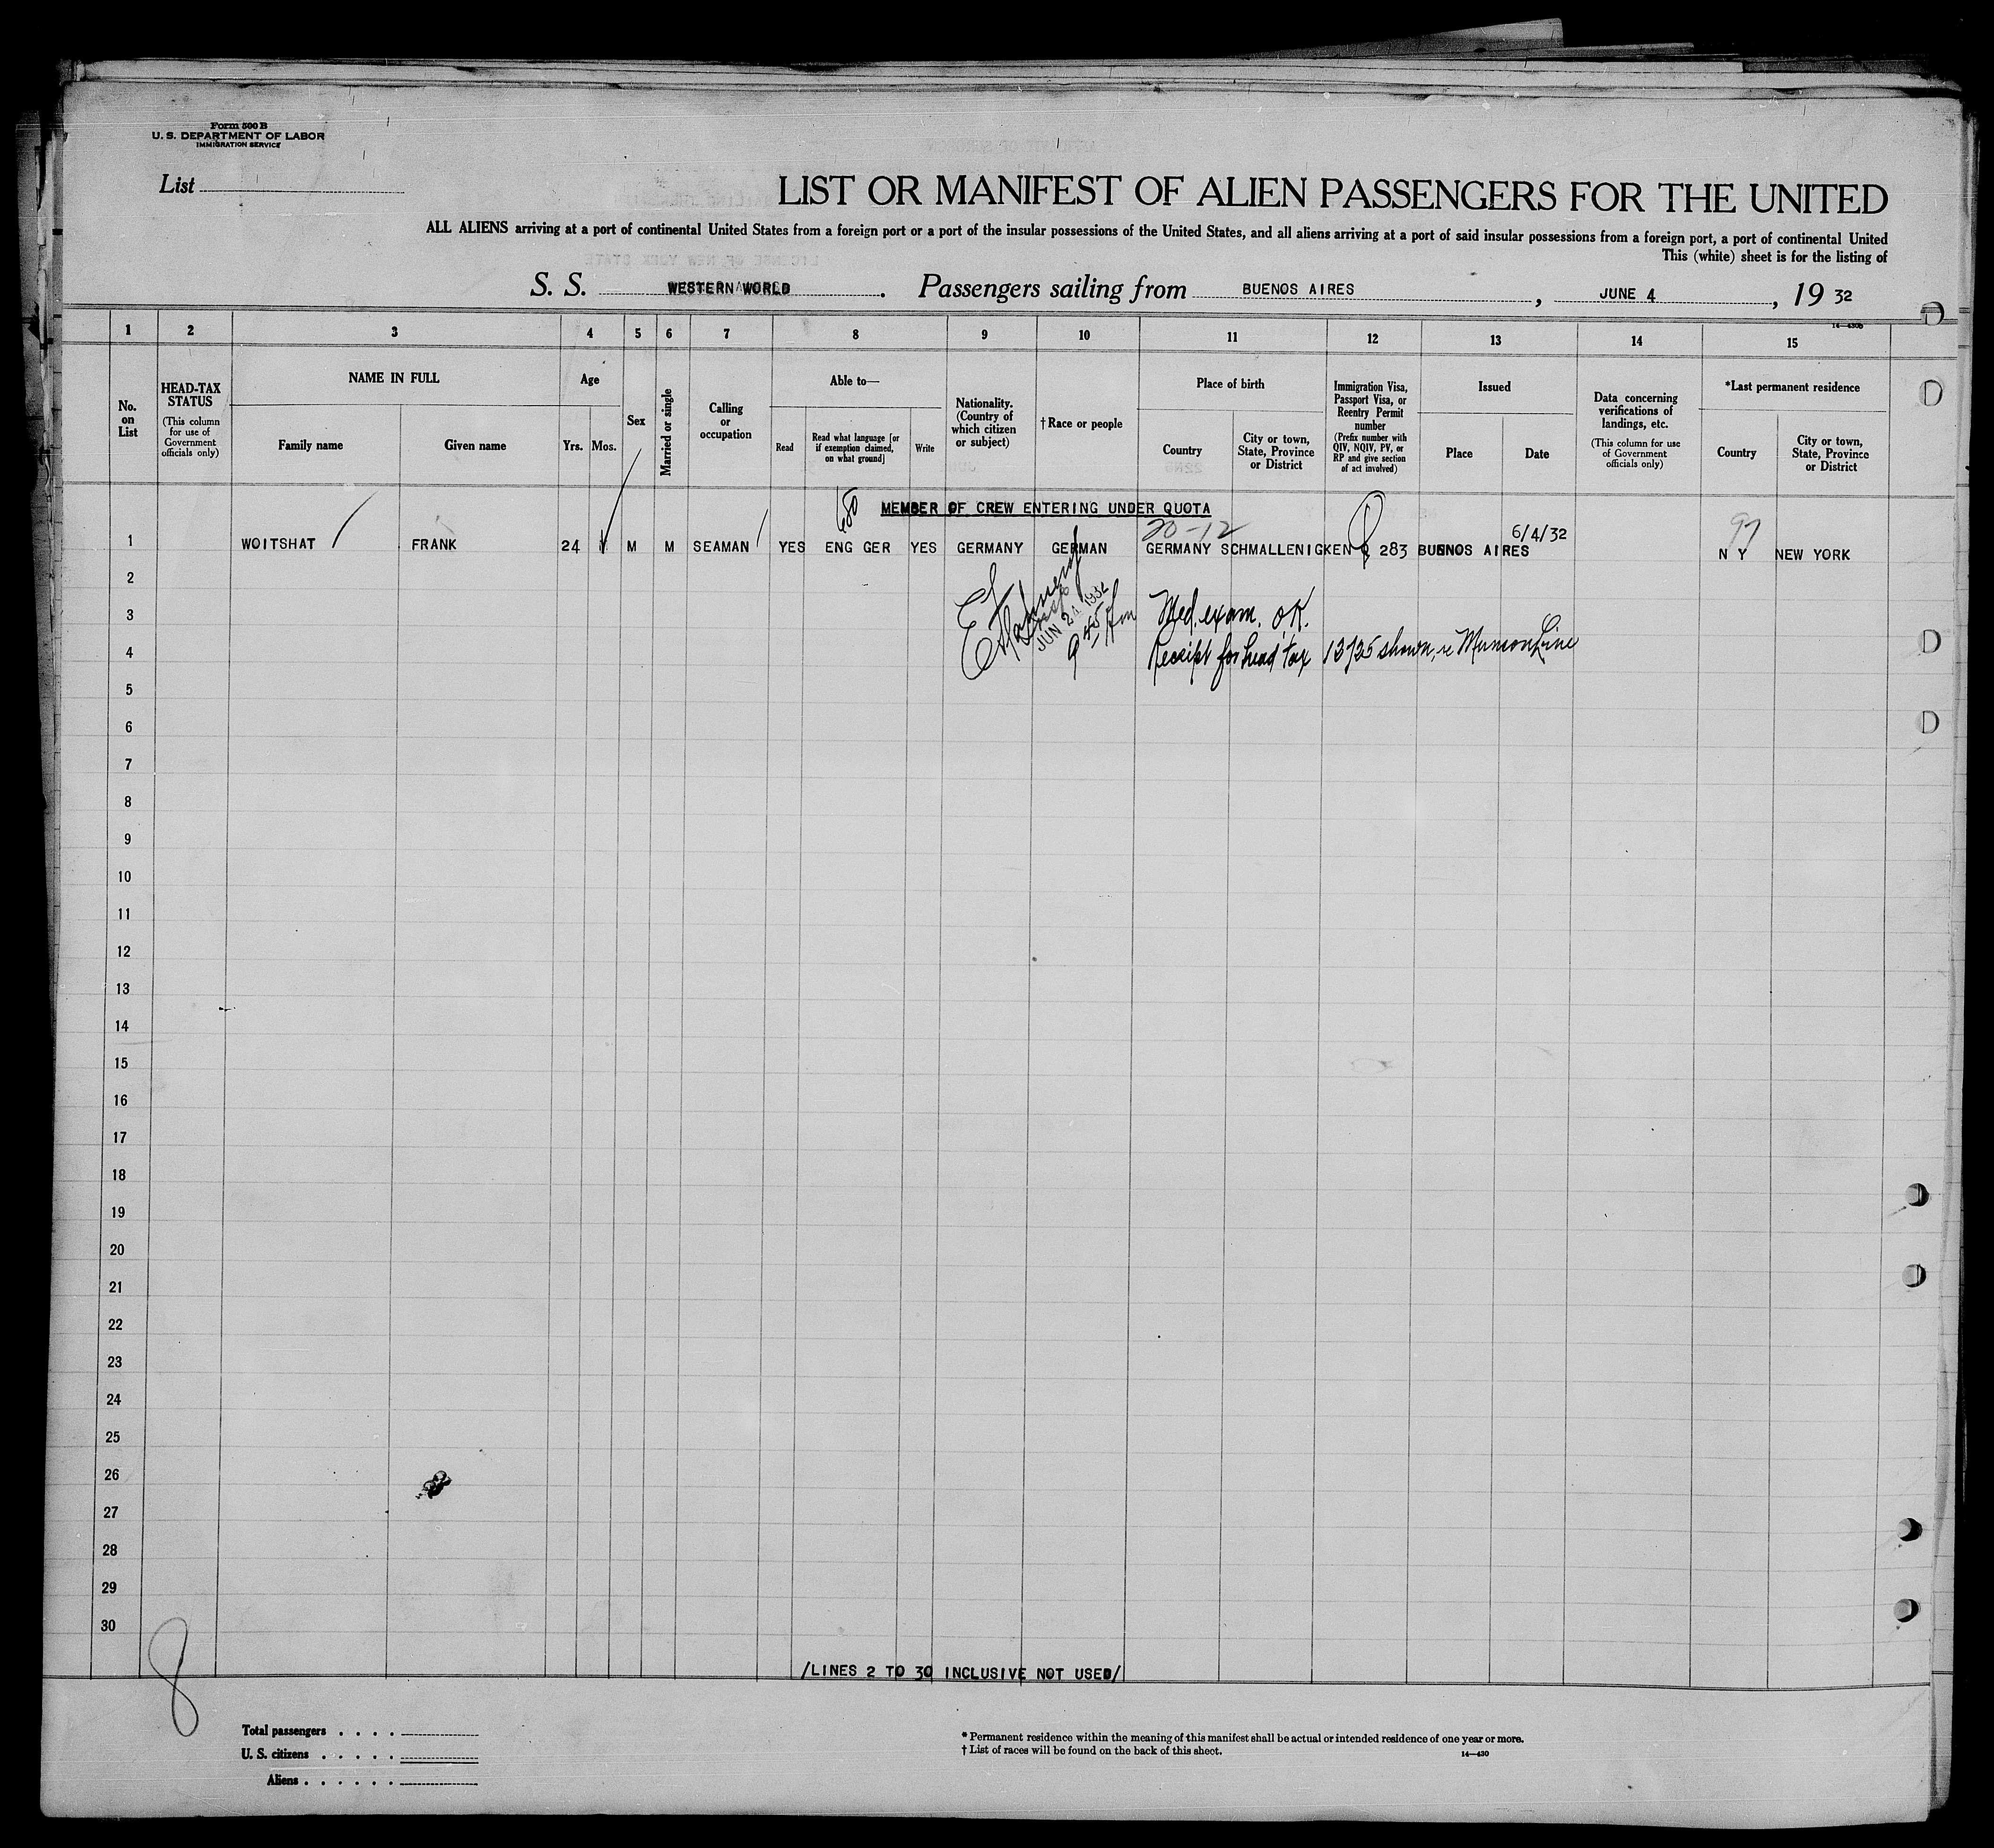 Form 500 B
U. S. DEPARTMENT OF LABOR
IMMIGRATION SERVICE
List
LIST OR MANIFEST OF ALIEN PASSENGERS FOR THE UNITED
ALL ALIENS arriving at a port of continental United States from a foreign port or a port of the insular possessions of the United States, and all aliens arriving at a port of said insular possessions from a foreign port, a port of continental United
This (white) sheet is for the listing of
S. S. WESTERN WORLD. Passengers sailing from BUENOS AIRES, JUNE 4, 19 32
1 2 3 4 5 6 7 8 9 10 11 12 13 14 15
No. on List
HEAD-TAX STATUS
(This column for use of Government officials only)
NAME IN FULL
Family name
Given name
Age
Yrs. Mos.
Sex
Married or single
Calling or occupation
Able to—
Read
Read what language [or if exemption claimed, on what ground]
Write
Nationality. (Country of which citizen or subject)
† Race or people
Place of birth
Country
City or town, State, Province or District
Immigration Visa, Passport Visa, or Reentry Permit number
(Prefix number with QIV, NQIV, PV, or RP and give section of act involved)
Issued
Place
Date
Data concerning verifications of landings, etc.
(This column for use of Government officials only)
*Last permanent residence
Country
City or town, State, Province or District
MEMBER OF CREW ENTERING UNDER QUOTA
20-12 6/4/32 97
1 WOITSHAT FRANK 24 M M SEAMAN YES ENG GER YES GERMANY GERMAN GERMANY SCHMALLENIGKEN Q 283 BUENOS AIRES N Y NEW YORK
2
3
JUN 21 1932
9 45 Am
Med. exam. OK.
4
Receipt for head tax 13725 shown, Munson Line
5
6
7
8
9
10
11
12
13
14
15
16
17
18
19
20
21
22
23
24
25
26
27
28
29
30
8
/LINES 2 TO 30 INCLUSIVE NOT USED/
Total passengers
U. S. citizens
Aliens
* Permanent residence within the meaning of this manifest shall be actual or intended residence of one year or more.
† List of races will be found on the back of this sheet.
14—430